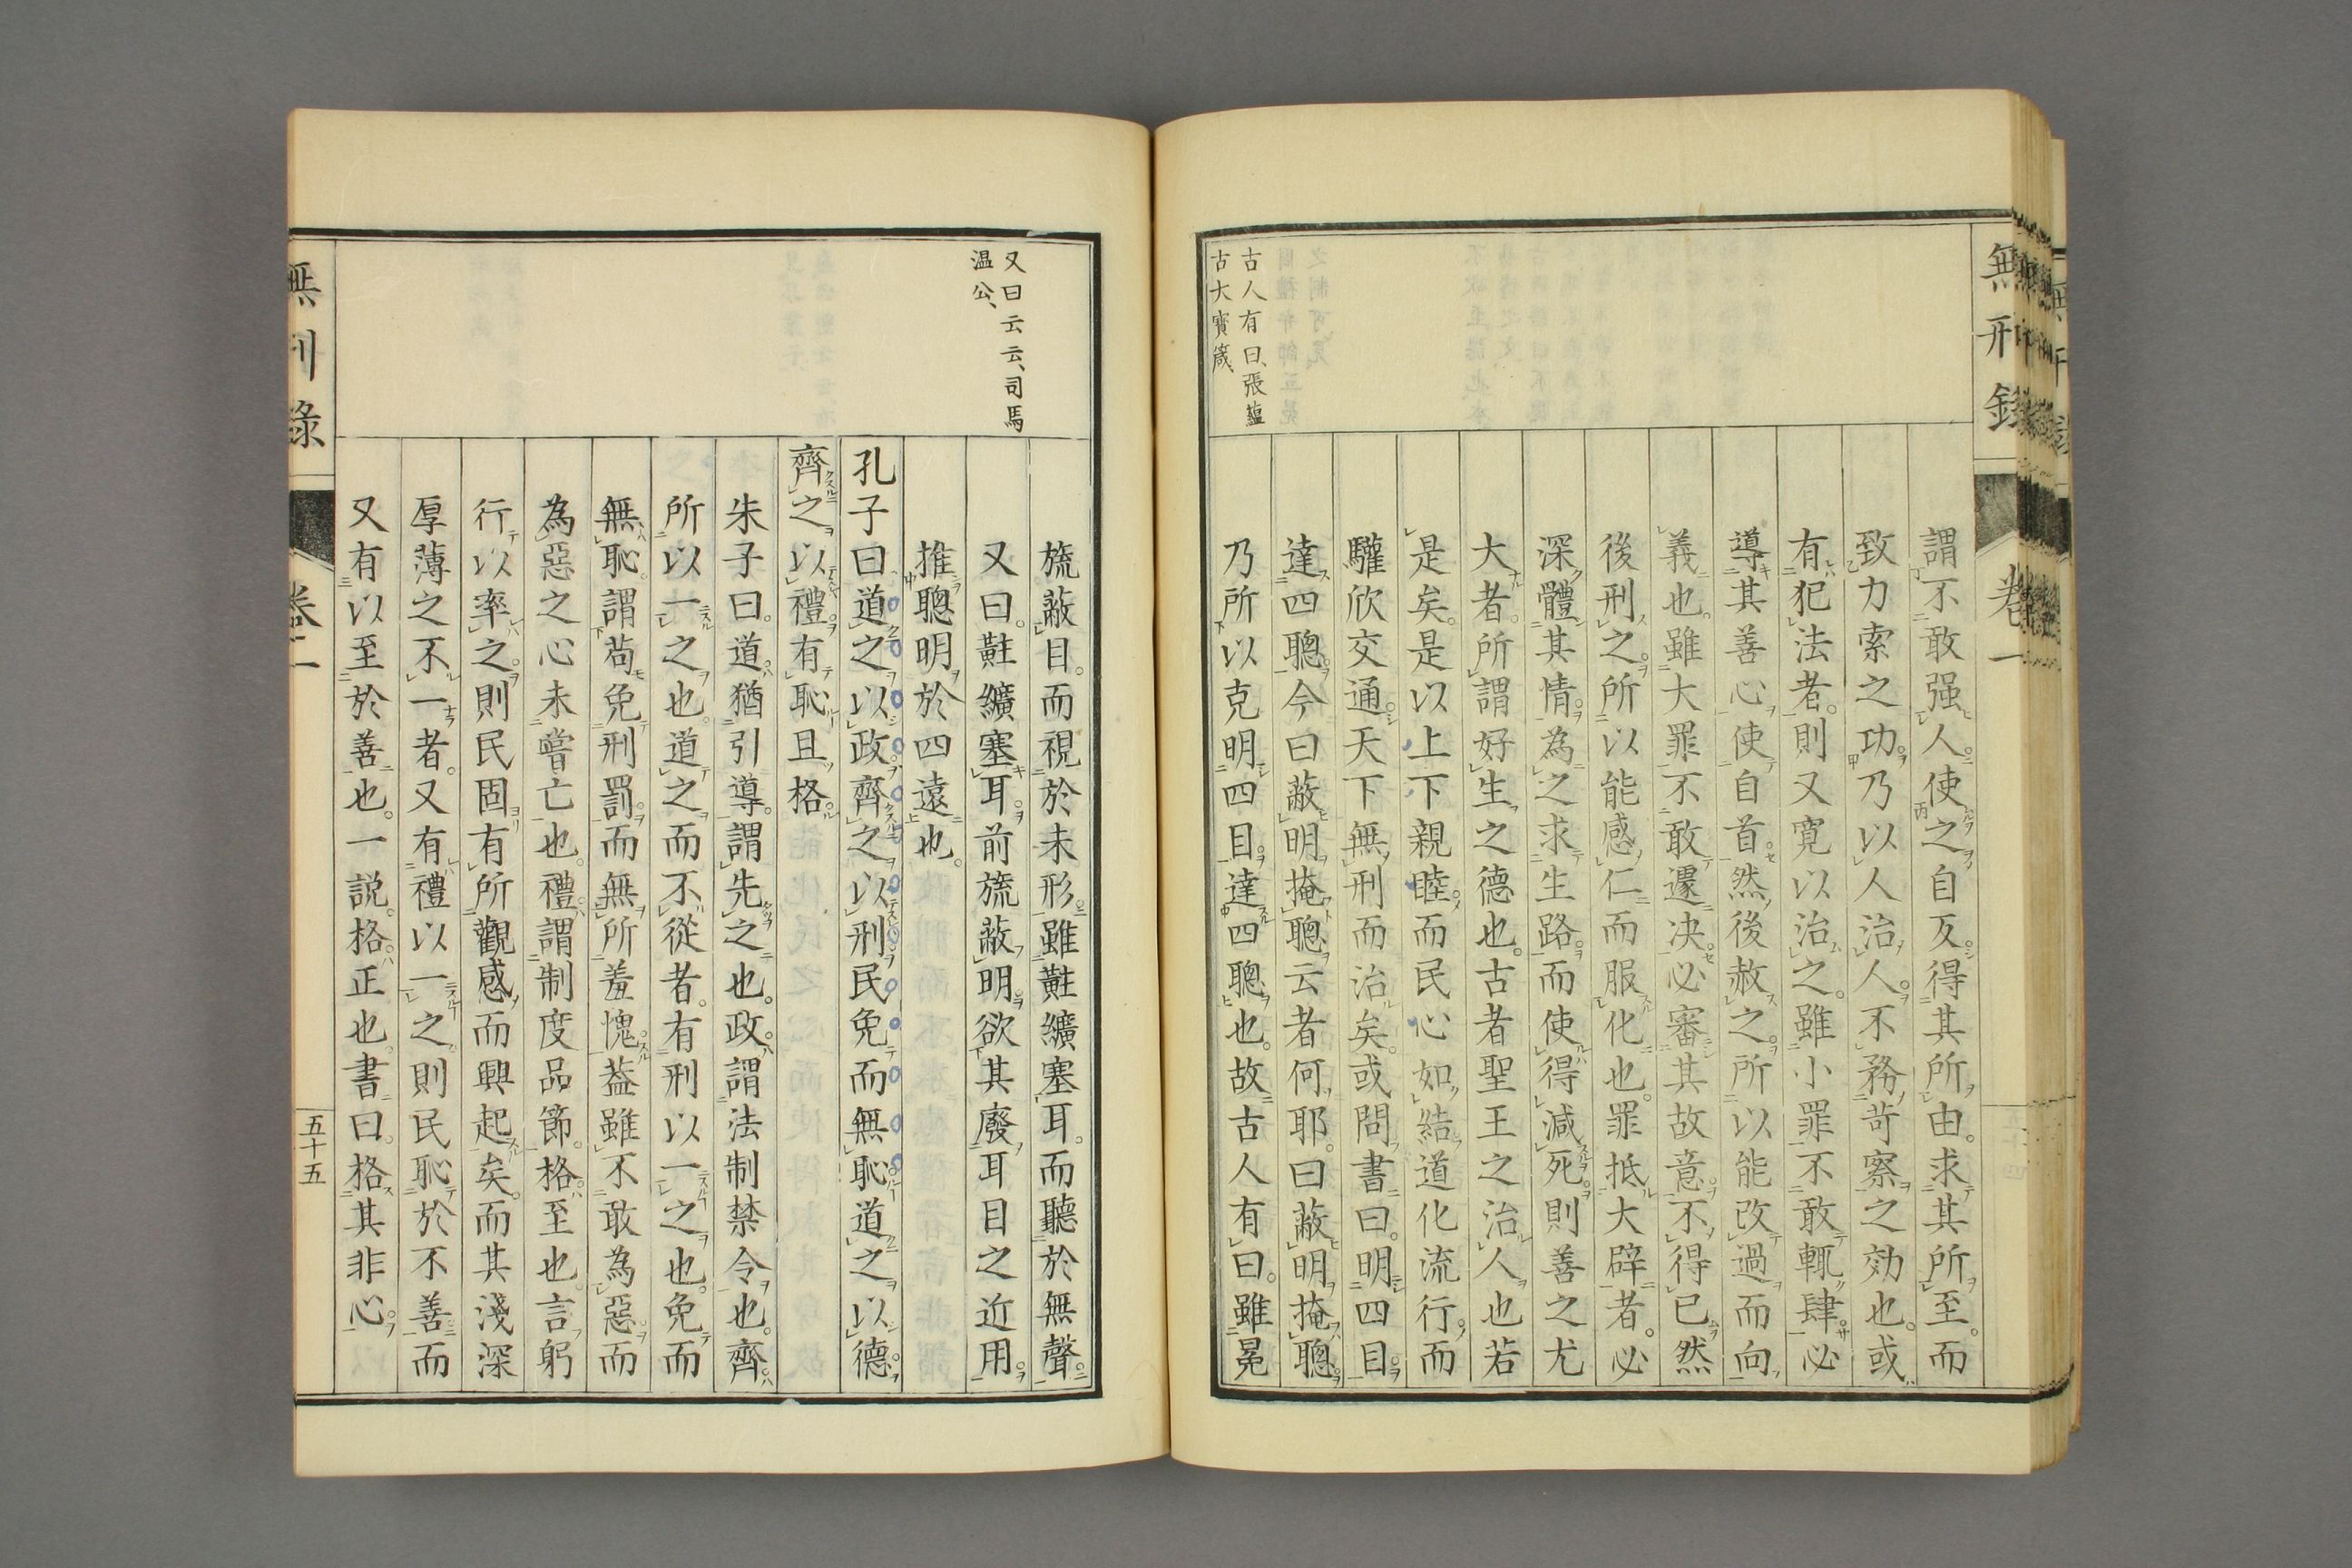 無刑錄
卷一
謂不敢强人使之自反得其所由求其所至而
致力索之功乃以人治人不務苛察之効也或
有犯法者則又寛以治之雖小罪不敢輒肆必
導其善心使自首然後赦之所以能改過而向
義也雖大罪不敢遽决必審其故意不得已然
後刑之所以能感仁而服化也罪抵大辟者必
深體其情為之求生路而使得減死則善之尤
大者所謂好生之德也古者聖王之治人也若
是矣是以上下親睦而民心如結道化流行而
驩欣交通天下無刑而治矣或問書曰明四目
達四聰今曰蔽明掩聰云者何耶曰蔽明掩聰
乃所以克明四目達四聰也故古人有曰雖冕
古人有曰、張蘊
古大寳箴、
旒蔽目而視於未形雖黈纊塞耳而聽於無聲
又曰黈纊塞耳前旒蔽明欲其廢耳目之近用
推聰明於四遠也
又曰云云、司馬
温公、
孔子曰道之以政齊之以刑民免而無恥道之以德
齊之以禮有恥且格
朱子曰道猶引導謂先之也政謂法制禁令也齊
所以一之也道之而不從者有刑以一之也免而
無恥謂苟免刑罰而無所羞愧葢雖不敢為惡而
為惡之心未嘗亡也禮謂制度品節格至也言躬
行以率之則民固有所觀感而興起矣而其淺深
厚薄之不一者又有禮以一之則民恥於不善而
又有以至於善也一説格正也書曰格其非心
無刑錄
卷一
五十五